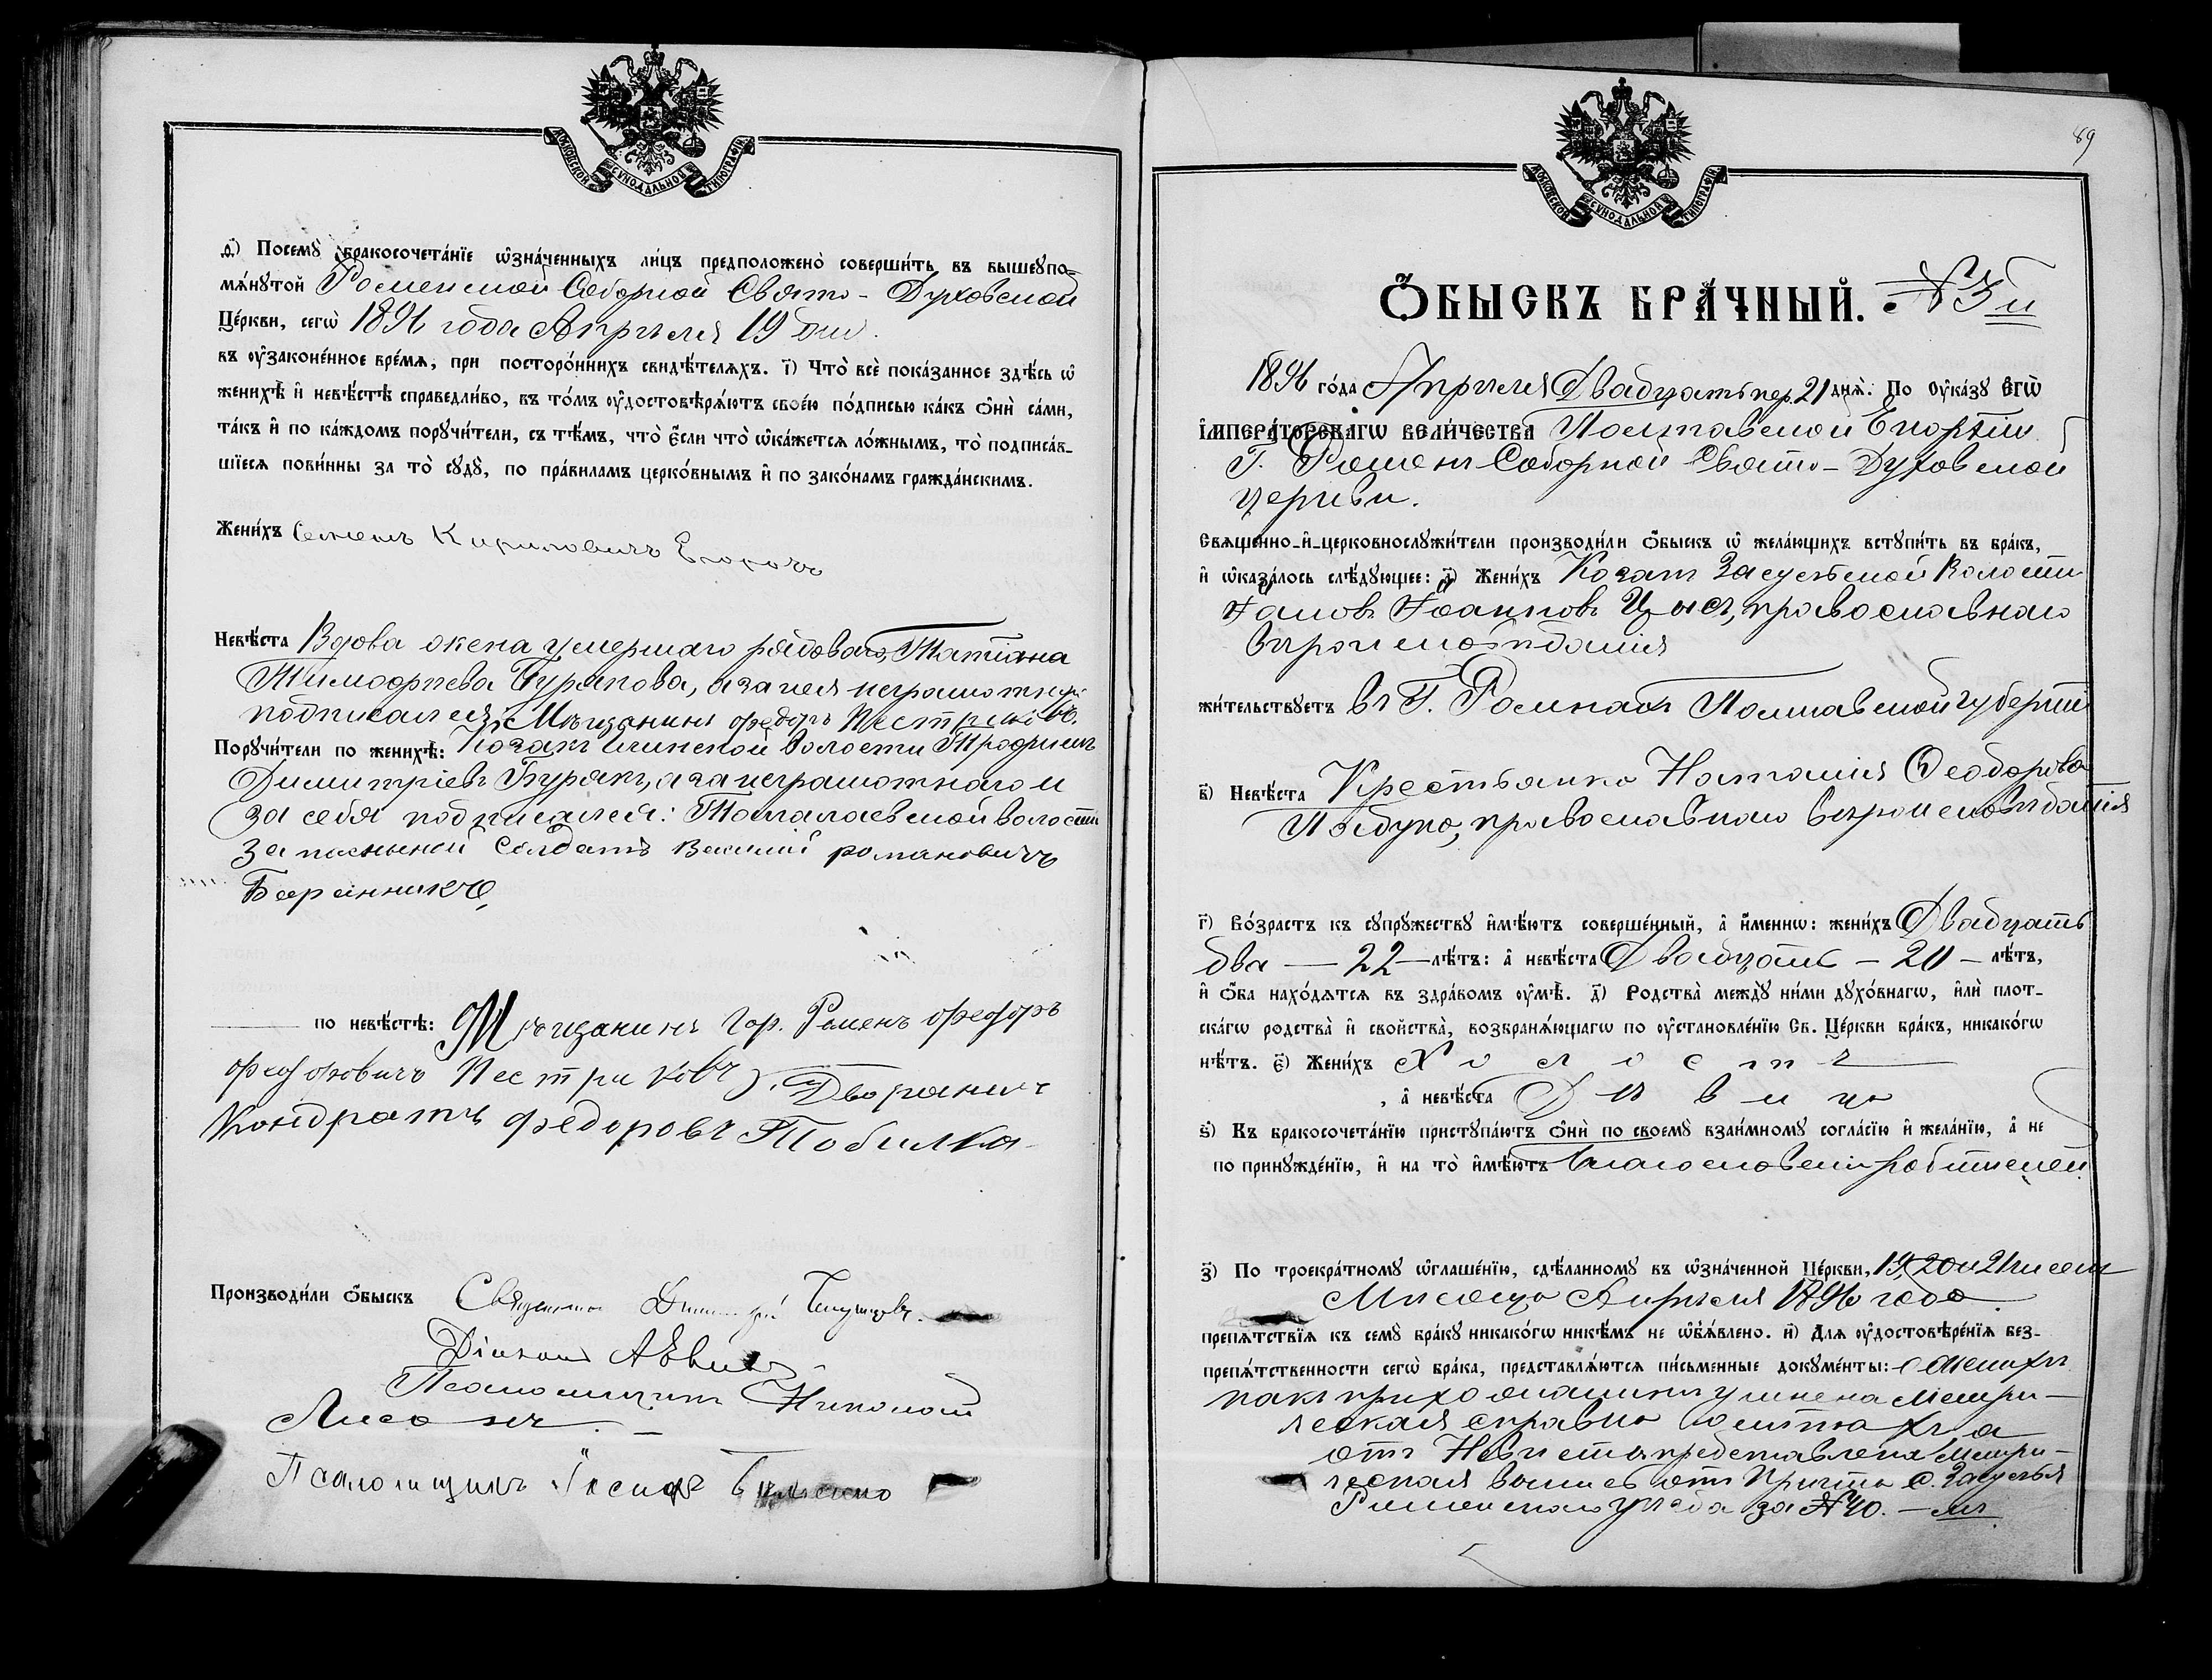 МОСКОВСКОЙ СѴНОДАЛЬНОЙ ТИПОГРАФІИ
д҃і) Посемꙋ̀ бракосочета́нїе ѡ҆зна́ченныхъ ли́цъ предположено̀ соверши́ть въ вышеꙋпо-
мѧ́нꙋтой Роменской Соборной Свято-Духовской
Це́ркви, сегѡ̀ 1896 года Апрѣля 19 дня.
въ ᲂу҆законе́нное вре́мѧ, при посторо́ннихъ свидѣ́телѧхъ. і҃) Что̀ всѐ пока́занное здѣ́сь ѡ҆
женихѣ̀ и҆ невѣ́стѣ справедли́во, въ то́мъ ᲂу҆достовѣрѧ́ютъ свое́ю по́дписью ка́къ ѻ҆нѝ са́ми,
та́къ и҆ по ка́ждомъ порꙋчи́тели, съ тѣ́мъ, что̀ є҆́сли что̀ ѡ҆ка́жетсѧ ло́жнымъ, то̀ подписа́в-
шїесѧ пови́нны за то̀ сꙋдꙋ̀, по пра́виламъ церко́внымъ и҆ по зако́намъ гражда́нскимъ.
Жени́хъ Семенъ Кириловичъ
Невѣ́ста Вдова жена умершаго рядоваго Татіана
Тимофѣева Бурякова, а за нея неграмотную
подписался: Мѣщанинъ федоръ Пестриковъ.
Порꙋчи́тели по женихѣ̀: Козакъ волости Трофимъ
Димитріевъ Бурякъ, а за неграмотнаго и
за себя подписался: Талалаевской волости
запасный Солдатъ Василий романовичъ
Баранникъ
по невѣ́стѣ: Мѣщанинъ Гор. Роменъ федоръ
федоровичъ Пестриковъ, Дворянинъ
Кондратъ федоровъ Тобилка
Производи́ли ѻ҆́быскъ Священникъ
Діаконъ
Псаломщикъ Николай
Псаломщикъ Іосифъ
89
МОСКОВСКОЙ СѴНОДАЛЬНОЙ ТИПОГРАФІИ
Ѻ҆́БЫСКЪ БРА́ЧНЫЙ. №3й
1896 го́да Апрѣля Двадцать пер. 21 днѧ̀. По ᲂу҆ка́зꙋ Є҆гѡ̀
І҆мпера́торскагѡ вели́чества Полтавской Епархіи
Г. Роменъ Соборной Свято-Духовской
церкви.
Свѧще́нно-и҆-церковнослꙋжи́тели производи́ли ѻ҆́быскъ ѡ҆ жела́ющихъ встꙋпи́ть въ бра́къ,
и҆ ѡ҆каза́лось слѣ́дꙋющее: а҃) Жени́хъ Козакъ Засульской Волости
Іоаннов Цысь, православнаго
вѣроисповѣданія
жи́тельствꙋетъ въ Г. Ромнахъ Полтавской губерніи
в҃) Невѣ́ста Крестьянка Наталія Ѳеодорова
православнаго вѣроисповѣданія
г҃) Во́зрастъ къ сꙋпрꙋ́жествꙋ и҆мѣ́ютъ соверше́нный, а҆ и҆́меннѡ: жени́хъ Двадцать
два — 22 — лѣ́тъ: а҆ невѣ́ста Двадцать — 20 — лѣ́тъ,
и҆ ѻ҆́ба нахо́дѧтсѧ въ здра́вомъ ᲂу҆мѣ̀. д҃) Родства̀ междꙋ̀ ни́ми дꙋхо́внагѡ, и҆лѝ плот-
ска́гѡ родства̀ и҆ свойства̀, возбранѧ́ющагѡ по ᲂу҆становле́нїю Св. Це́ркви бра́къ, никако́гѡ
нѣ́тъ. є҃) Жени́хъ Холостъ
, а҆ невѣ́ста Дѣвица
ѕ҃) Къ бракосочета́нїю пристꙋпа́ютъ ѻ҆нѝ по своемꙋ̀ взаи́мномꙋ согла́сїю и҆ жела́нїю, а҆ не
по принꙋжде́нїю, и҆ на то̀ и҆мѣ́ютъ благословеніе родителей
з҃) По троекра́тномꙋ ѡ҆глаше́нїю, сдѣ́ланномꙋ въ ѡ҆зна́ченной Це́ркви, 19, 20 и 21 чиселъ
Мѣсяца Апрѣля 1896 года.
препѧ́тствїѧ къ семꙋ̀ бра́кꙋ никако́гѡ никѣ́мъ не ѡ҆б̾ѧ́влено. и҃) Для ᲂу҆достовѣре́нїѧ без-
препѧ́тственности сегѡ̀ бра́ка, представлѧ́ютсѧ пи́сьменные докꙋме́нты: о женихѣ
какъ прихожанинѣ учинена Метри-
ческая справка а
отъ Невѣсты представлена Метри-
ческая выпись отъ Причта с. Засулья
Роменскаго уѣзда за №40.